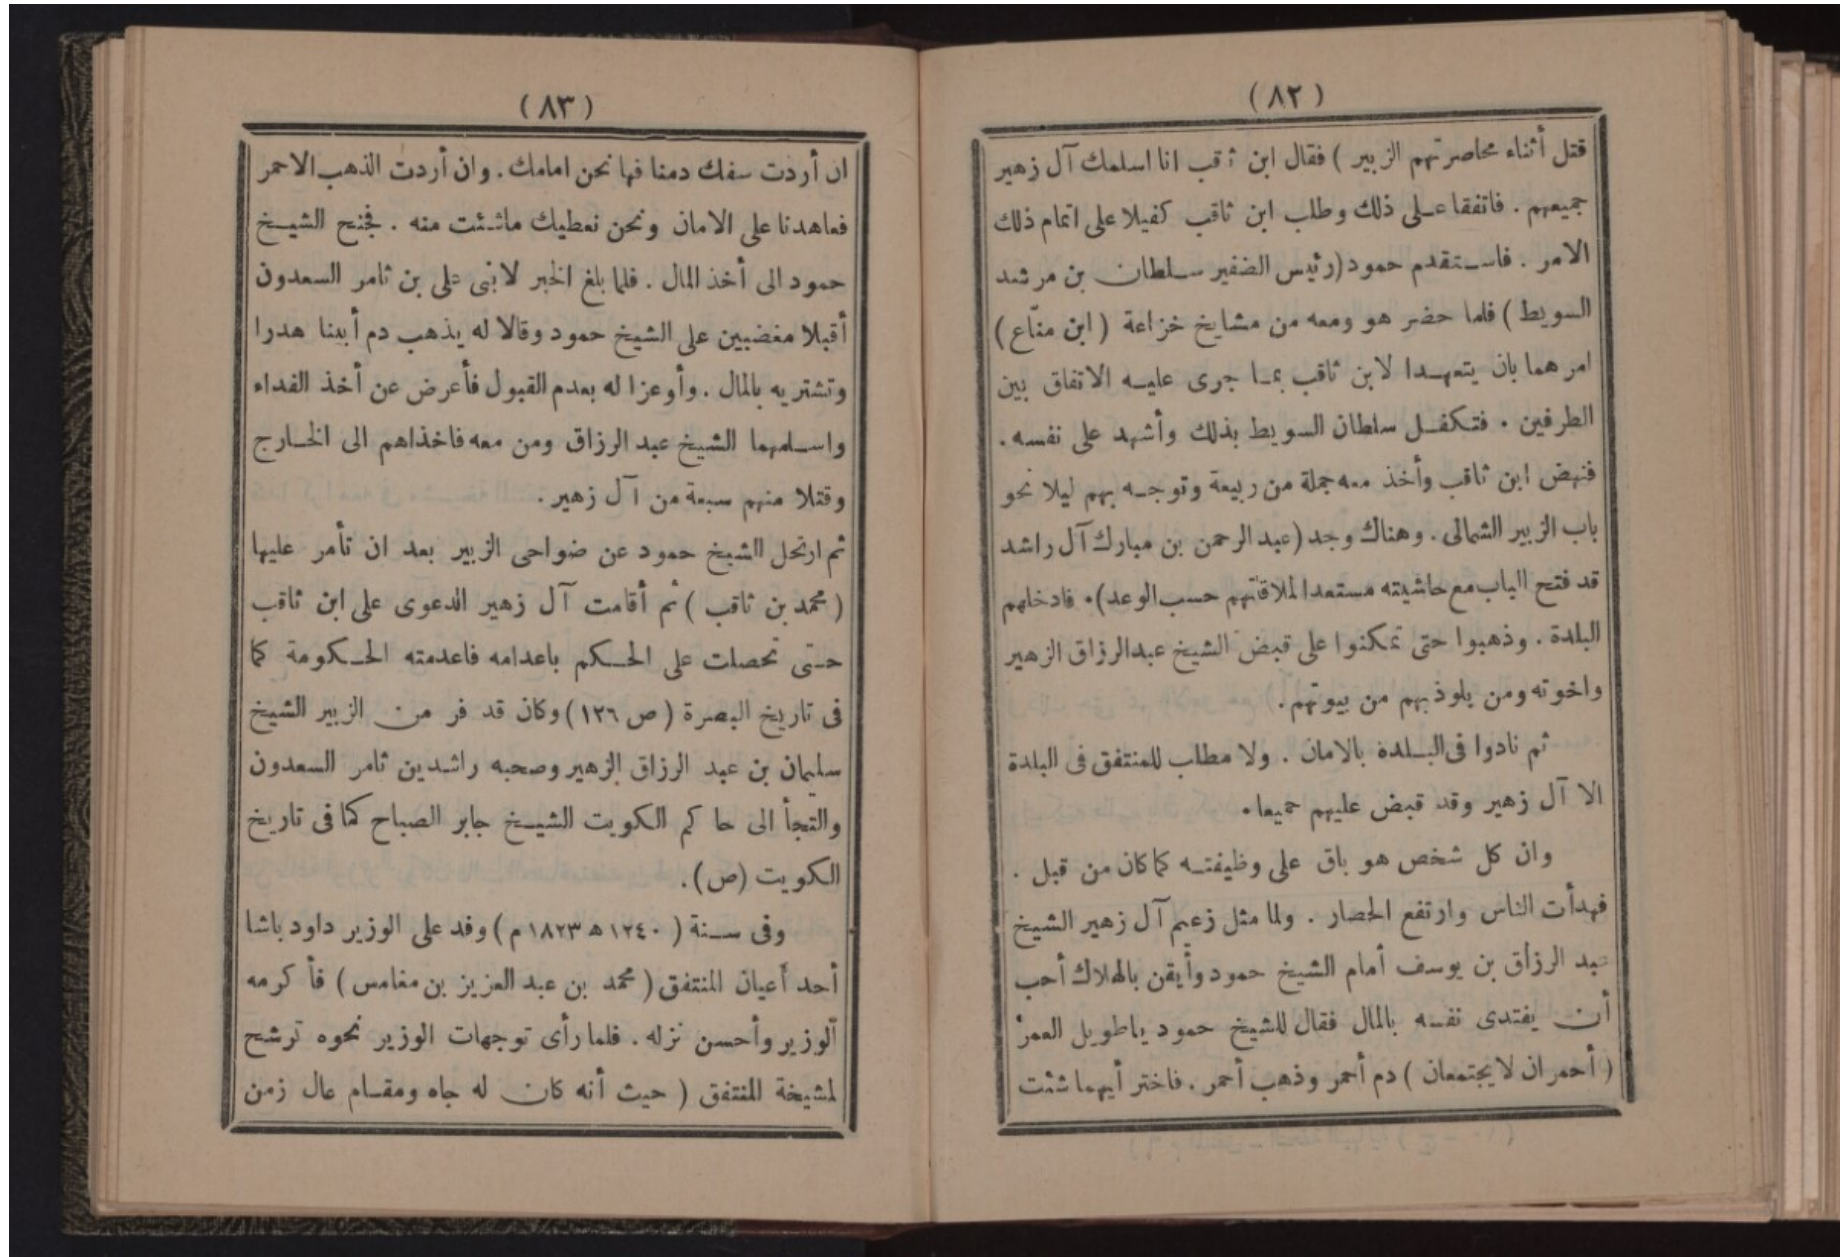 ( ٨٢ )
قتل أثناء محاصرتهم الزبير ) فقال ابن ثاقب انا اسلمك آل زهير
جميعهم . فاتفقا على ذلك وطلب ابن ثاقب كفيلا على اتمام ذلك
الامر . فاستقدم حمود (رئيس الضفير سلطان بن مرشد
السويط ) فلما حضر هو ومعه من مشايخ خزاعة ( ابن منّاع )
امرهما بان يتعهدا لابن ثاقب بما جرى عليه الاتفاق بين
الطرفين . فتكفل سلطان السويط بذلك وأشهد على نفسه .
فنهض ابن ثاقب وأخذ معه جملة من ربيعة وتوجه بهم ليلا نحو
باب الزبير الشمالى . وهناك وجد (عبد الرحمن بن مبارك آل راشد
قد فتح الباب مع حاشيته مستعدا لملاقاتهم حسب الوعد) . فادخلهم
البلدة . وذهبوا حتى تمكنوا على قبض الشيخ عبدالرزاق الزهير
واخوته ومن يلوذ بهم من بيوتهم .
ثم نادوا فى البلدة بالامان . ولا مطلب للمنتفق فى البلدة
الا آل زهير وقد قبض عليهم جميعا .
وان كل شخص هو باق على وظيفته كما كان من قبل .
فهدأت الناس وارتفع الحصار . ولما مثل زعيم آل زهير الشيخ
عبد الرزاق بن يوسف أمام الشيخ حمود وأيقن بالهلاك أحب
أن يفتدى نفسه بالمال فقال للشيخ حمود ياطويل العمر
( أحمران لايجتمعان ) دم أحمر وذهب أحمر . فاختر أيهما شئت
( ٨٣ )
ان أردت سفك دمنا فها نحن امامك . وان أردت الذهب الاحمر
فعاهدنا على الامان ونحن نعطيك ماشئت منه . فجنح الشيخ
حمود الى أخذ المال . فلما بلغ الخبر لابنى على بن ثامر السعدون
أقبلا مغضبين على الشيخ حمود وقالا له يذهب دم أبينا هدرا
وتشتريه بالمال . وأوعزا له بعدم القبول فأعرض عن أخذ الفداء
واسلمهما الشيخ عبد الرزاق ومن معه فاخذاهم الى الخارج
وقتلا منهم سبعة من آل زهير .
ثم ارتحل الشيخ حمود عن ضواحى الزبير بعد ان تأمر عليها
( محمد بن ثاقب ) ثم أقامت آل زهير الدعوى على ابن ثاقب
حتى تحصلت على الحكم باعدامه فاعدمته الحكومة كما
فى تاريخ البصرة ( ص ١٢٦ ) وكان قد فر من الزبير الشيخ
سليمان بن عبد الرزاق الزهير وصحبه راشدبن ثامر السعدون
والتجأ الى حا كم الكويت الشيخ جابر الصباح كما فى تاريخ
الكويت (ص) .
وفى سنة ( ١٢٤٠ ه ١٨٢٣ م ) وفد على الوزير داود باشا
أحد أعيان المنتفق ( محمد بن عبد العزيز بن مغامس ) فأ كرمه
الوزير وأحسن نزله . فلما رأى توجهات الوزير نحوه ترشح
لمشيخة المنتفق ( حيث أنه كان له جاه ومقام عال زمن